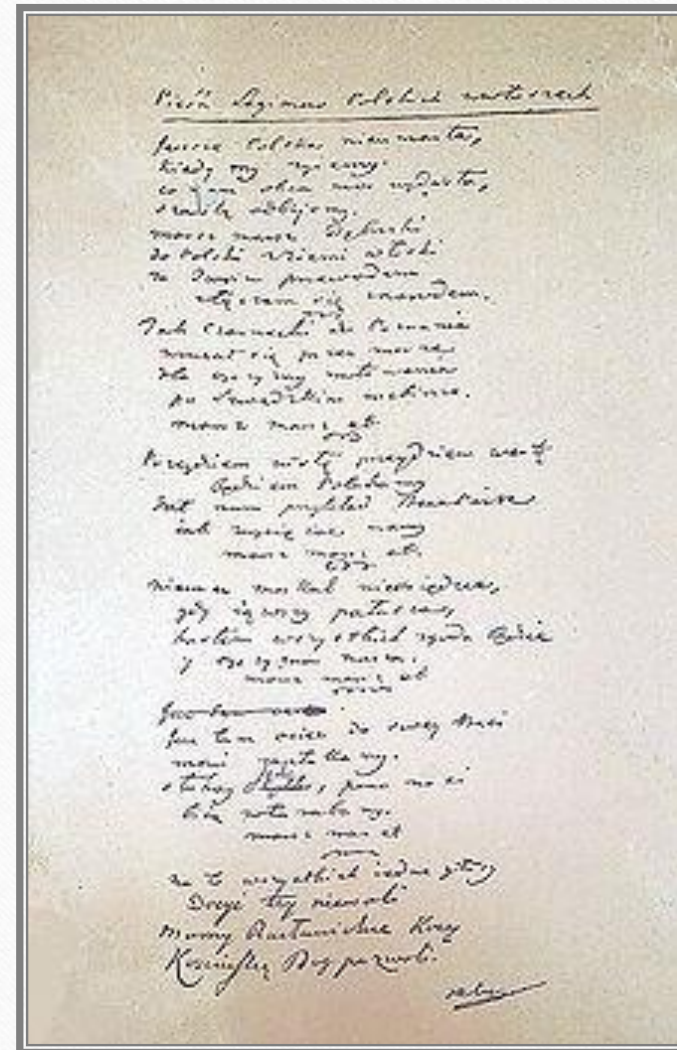 Pieśń Legionów Polskich we Włoszech
Jeszcze Polska nie umarła,
kiedy my żyjemy.
co nam obca moc wydarła,
szablą odbijemy.
marsz marsz Dąbrowski
do Polski z ziemi włoski
za Twoim przewodem
złączem się z narodem.
Jak Czarnecki do Poznania
wracał się przez morze
dla ojczyzny ratowania
po szwedzkim rozbiorze.
marsz marsz et
Przejdziem Wisłę przejdziem Wartę
będziem Polakami
dał nam przykład Bonaparte
jak zwyciężać mamy
marsz marsz et
niemiec moskal nie osiędzie,
gdy jąwszy pałasza,
hasłem wszystkich zgoda będzie
y ojczyzna nasza.
marsz marsz et
Już tam
Już tam ociec do swej Basi
mówi zapłakany.
słuchaj, pono nasi
biją w tarabany.
marsz mar et
na to wszystkich jedne głosy
Dosyć tey niewoli
mamy Racławickie Kosy
Kościuszkę Bóg pozwoli.